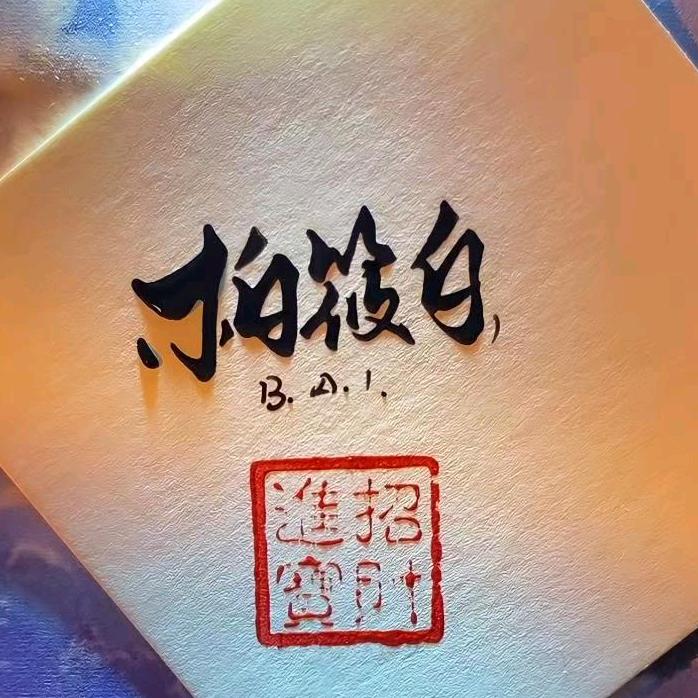 柏筱白,
B.A.I.
招財
進寶